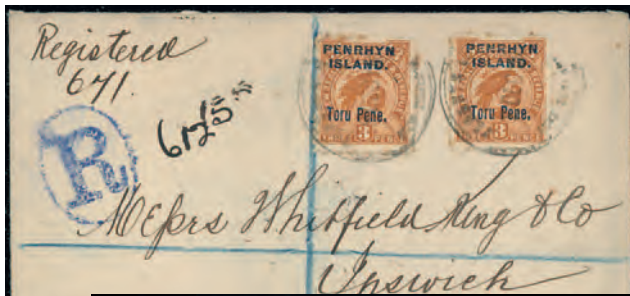 Registered
671.
PENRHYN
ISLAND.
Toru Pene.
3
PENRHYN
ISLAND.
Toru Pene.
3
R
Messrs Whitfield King & Co
Ipswich